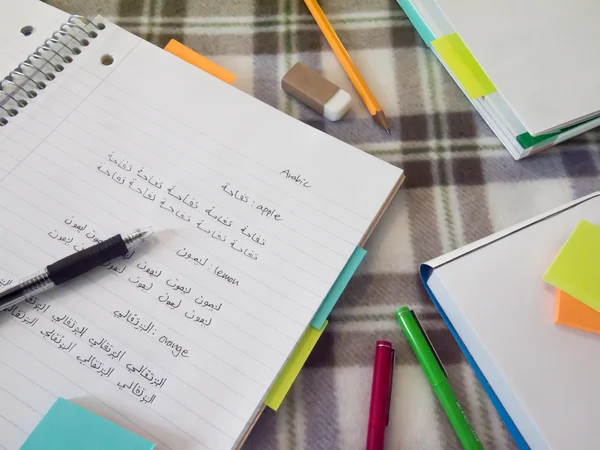 Arabic
تفاحة : apple
تفاحة تفاحة تفاحة تفاحة تفاحة تفاحة
تفاحة تفاحة تفاحة تفاحة تفاحة تفاحة
ليمون : lemon
ليمون ليمون ليمون ليمون ليمون
ليمون ليمون ليمون ليمون
البرتقالي : orange
البرتقالي البرتقالي البرتقالي البرتقالي
البرتقالي البرتقالي البرتقالي البرتقالي